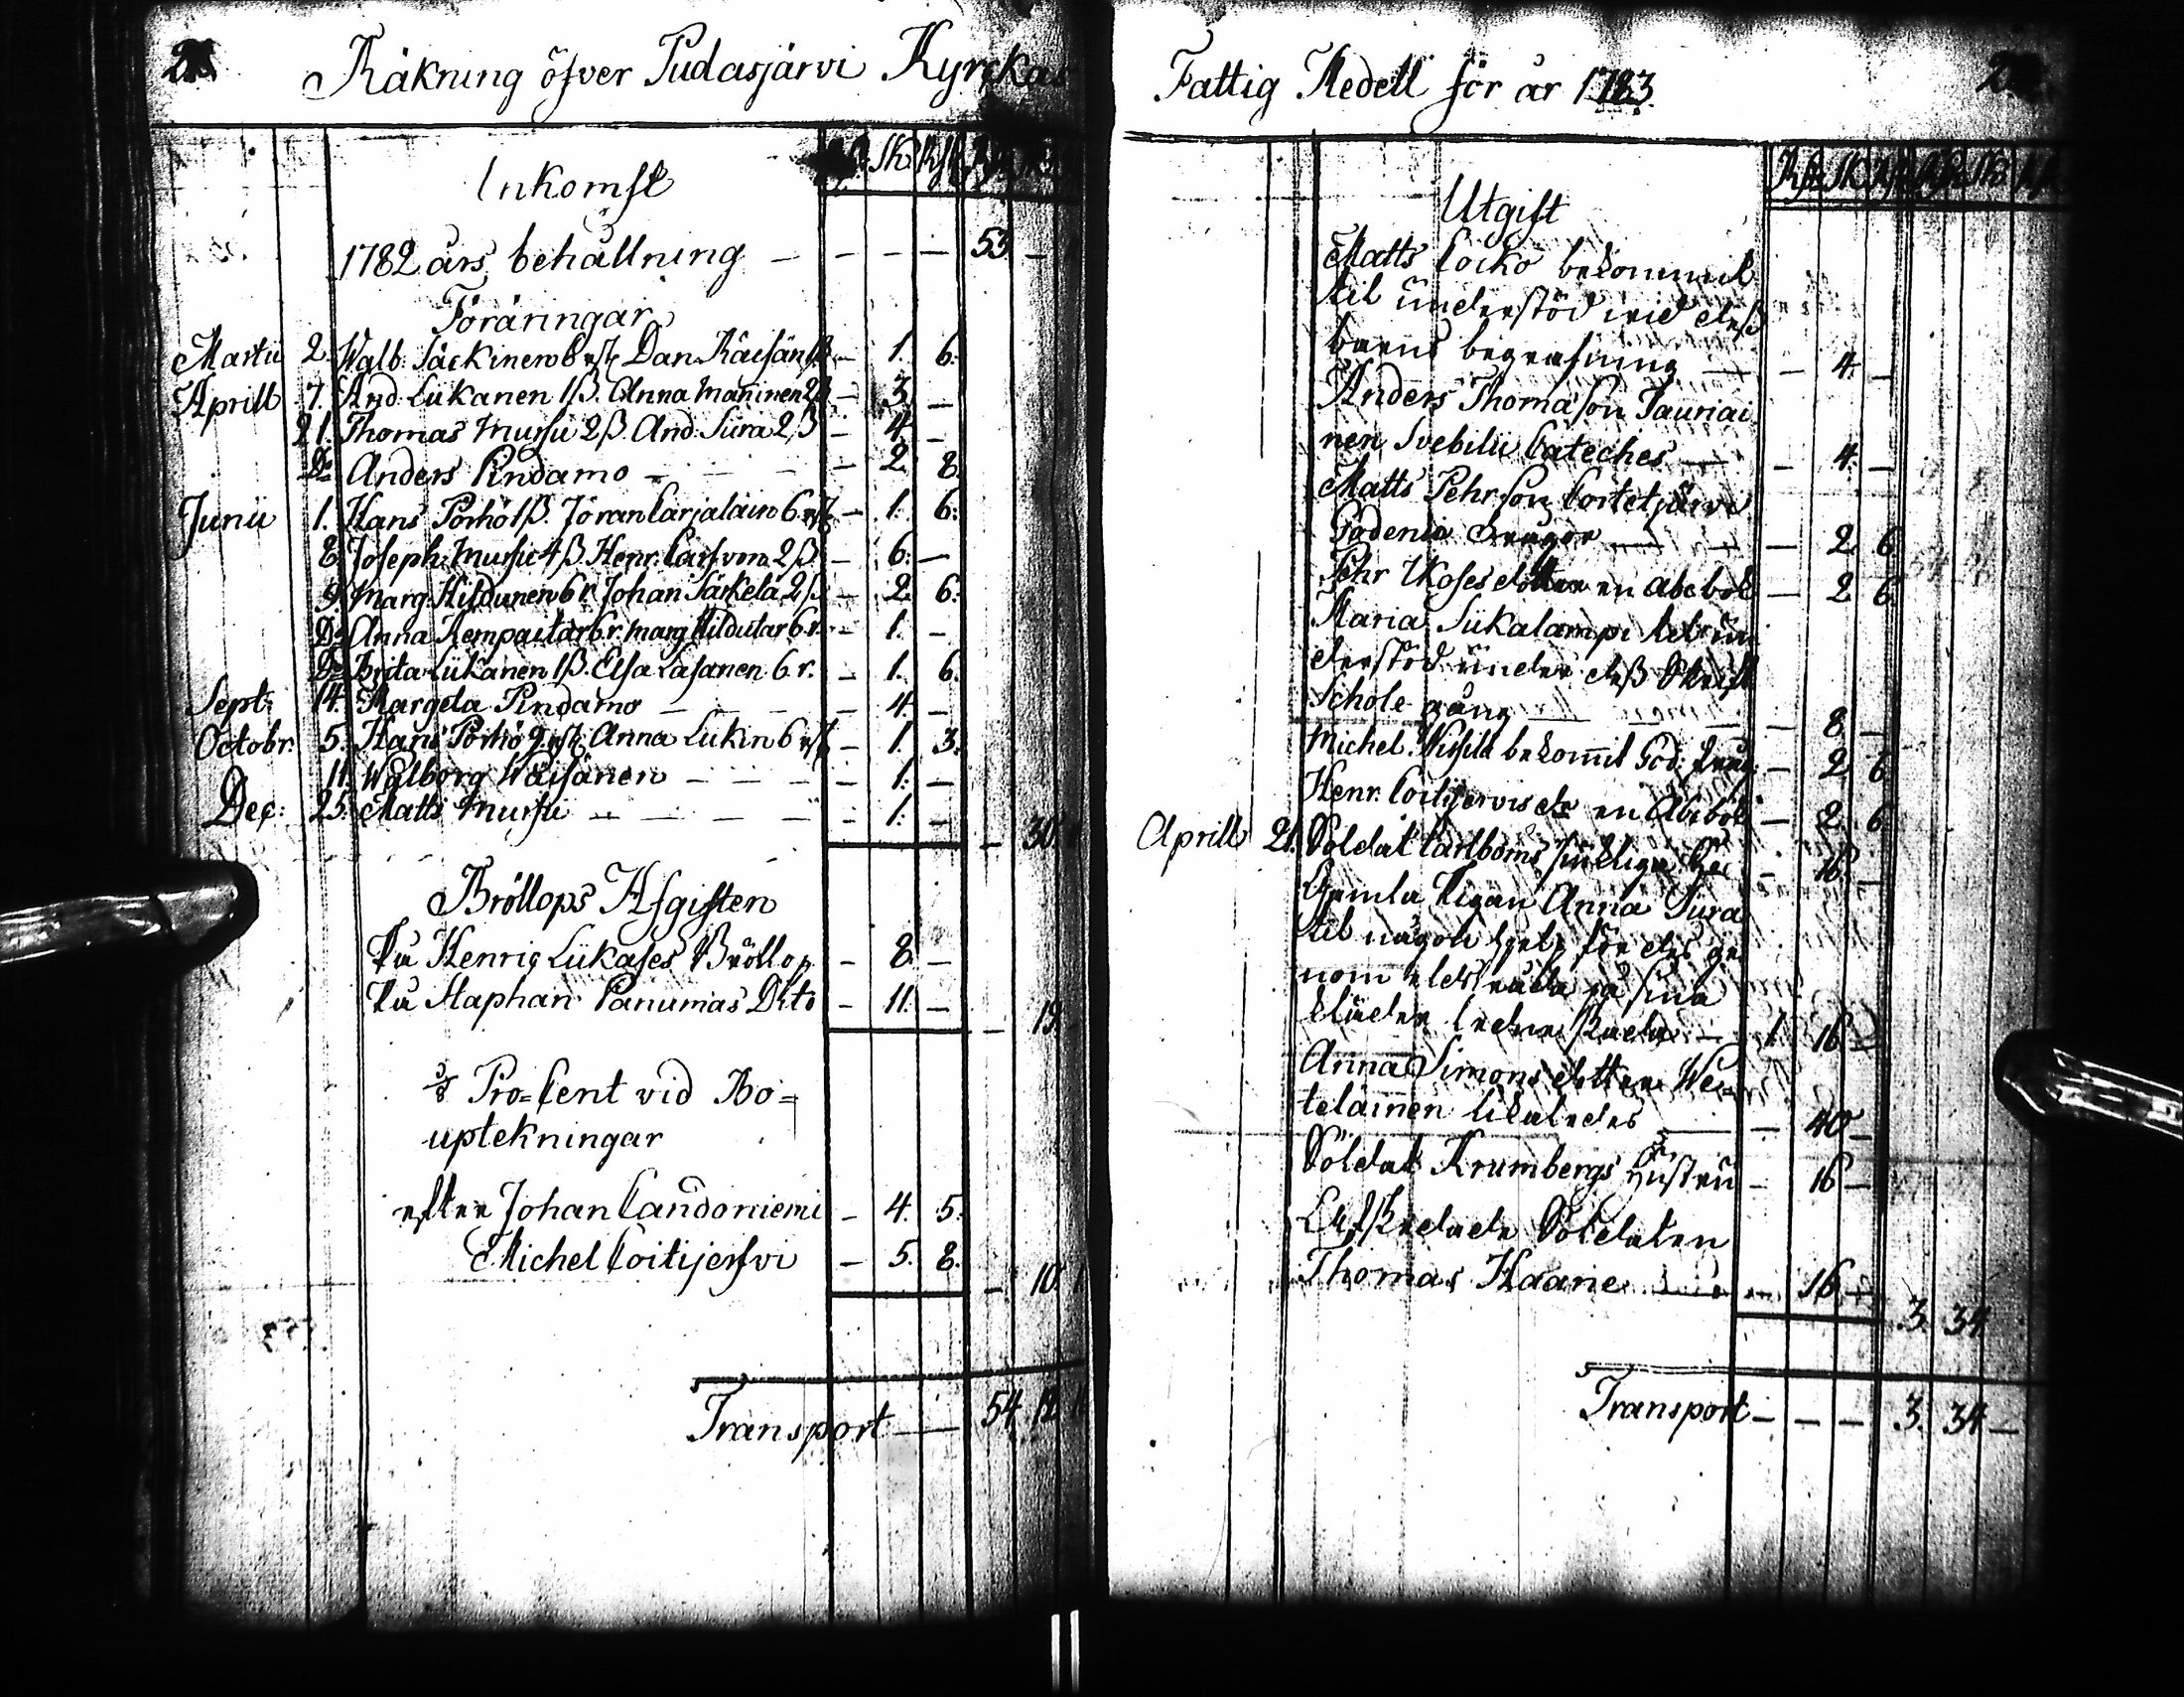 Räkning öfver Pudasjärvi Kyrckas
Inkomst Sk: Rst
1782 års behållning - - - - 53. -
Föräringar
Martii 2. Walb. Säckinen 6 rst. Dan. Räisän - 1. 6.
Aprill 7. And. Liikanen 1ß. Anna Manninen 2ß - 3. -
21. Thomas Mursu 2ß. And. Siira 2ß - 4. -
Do Anders Pindamo - - 2. 8.
Junii 1. Hans Pörhö 1ß. Jöran Carjalain 6 rst - 1. 6.
8. Joseph Mursu 4ß. Henr. 2ß - 6. -
9. Marg. Hildunen 6 r. Johan Särkelä 2ß - 2. 6.
Do Anna Kempaitar 6 r. Marg Hildutar 6 r. - 1. -
Do Brita Liikanen 1ß. Elsa Lasanen 6 r. - 1. 6.
Sept: 14. Margeta Pindamo - - 4. -
Octobr: 5. Hans Pörhö 9 rst. Anna Liikin 6 rst - 1. 3.
11. Walborg Wäisänen - - - 1. -
Dec: 25. Matts Mursu - - - 1. -
- 30.
Bröllops Afgiften
På Henric Liikases Bröllop - 8. -
På Staphan Panumas Dito - 11. -
- 19.
1/8 Pro=Cent vid Bo=
uptekningar
efter Johan Candoniemi - 4. 5.
Michel Coitijerfvi - 5. 8.
- 10.
Transport - 54. 12
Fattig Medell för år 1783
Utgift
Matts Coiko bekommit
til understöd vid dess
barns begrafning - - 4. -
Anders Thomasson Tauriai
nen Svebilii Cateches - - 4. -
Matts Pehrson
- 2. 6.
Pehr dotter en Abcbok - 2. 6.
Maria Siikalampi til un
derstöd under dess Skrift
Schole gång - - 8 -
Michel bekommit God. - 2. 6.
Henr. Coitijervis dr en Abcbok - 2. 6.
Aprill 21. Soldat Carlboms - 16. -
Gamla Pigan Anna Siira
til någon hjelp för des ge
nom eldsvåda på sina
kläder ledne skada - 1. 16 -
Anna Simonsdotter We-
teläinen likaledes - - 40 -
Soldat Krumbergs hustru - 16 -
Afskedade Soldaten
Thomas Haane - 16 -
3. 34
Transport - - - 3. 34 -